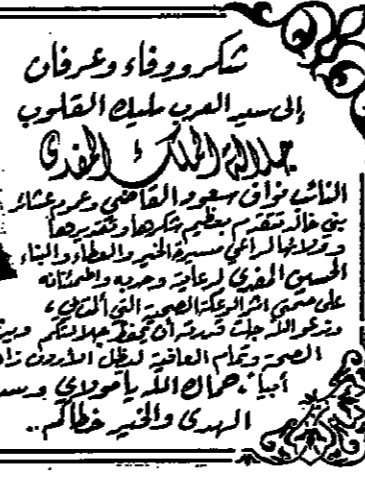 شكر ووفاء وعرفان
إلى سيد العرب مليك القلوب
جلالة الملك المفدى
النائب نواف سعود القاضي وعموم عشائر
بني خالد تتقدم بعظيم شكرها وتقديرها
وولائها لراعي مسيرة الخير والعطاء والبناء
الحسين المفدى لرعايته وحدبه واطمئنانه
على صحتي اثر الوعكة الصحية التي ألمت بي ،
وندعو الله جلت قدرته أن يحفظ جلالتكم
الصحة وتمام العافية ليظل الأردن
أبياً ، حماك الله يا مولاي
الهدى والخير خطاكم ..